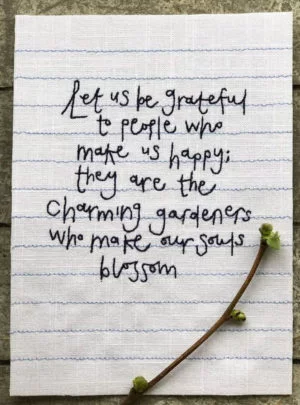 Let us be grateful
to people who
make us happy;
they are the
charming gardeners
who make our souls
blossom